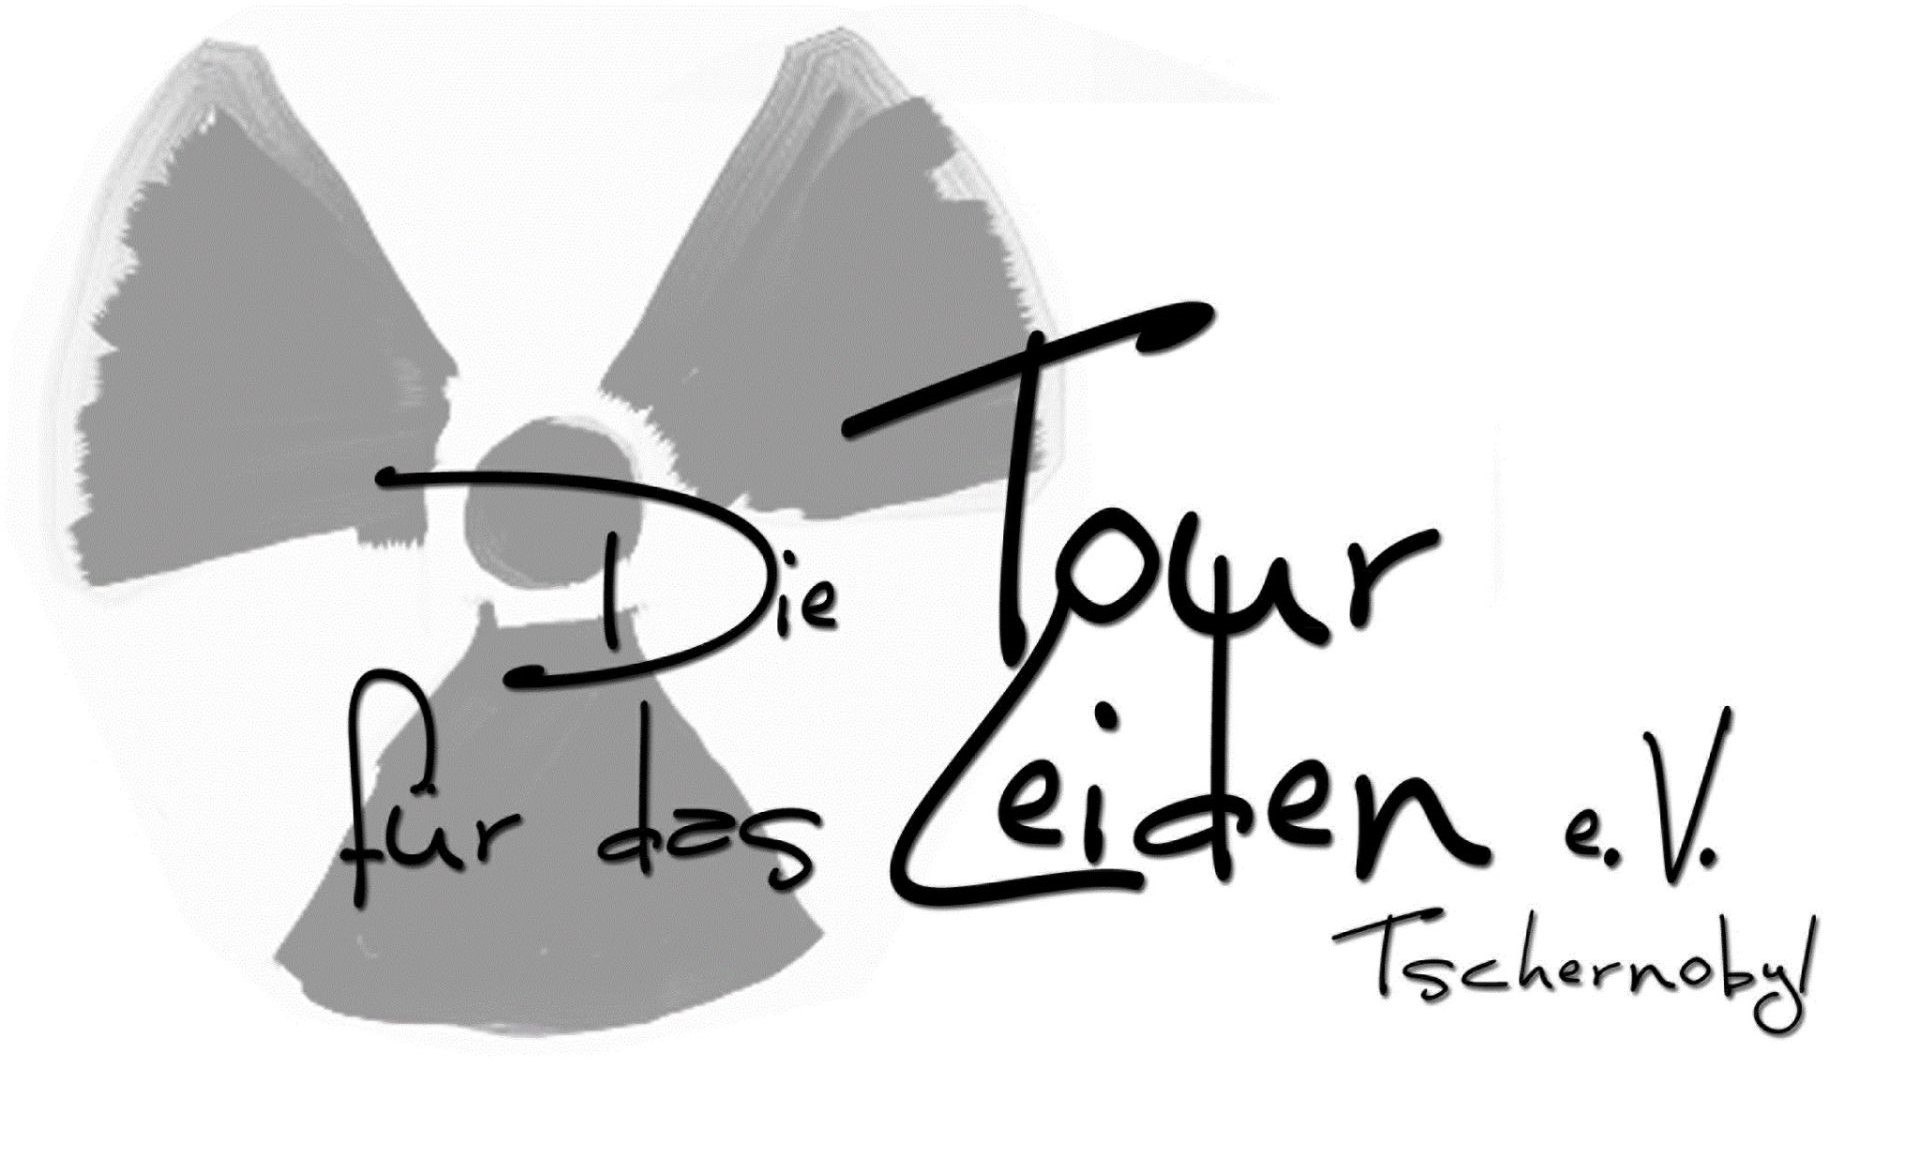 Die Tour
für das Leiden e.V.
Tschernobyl